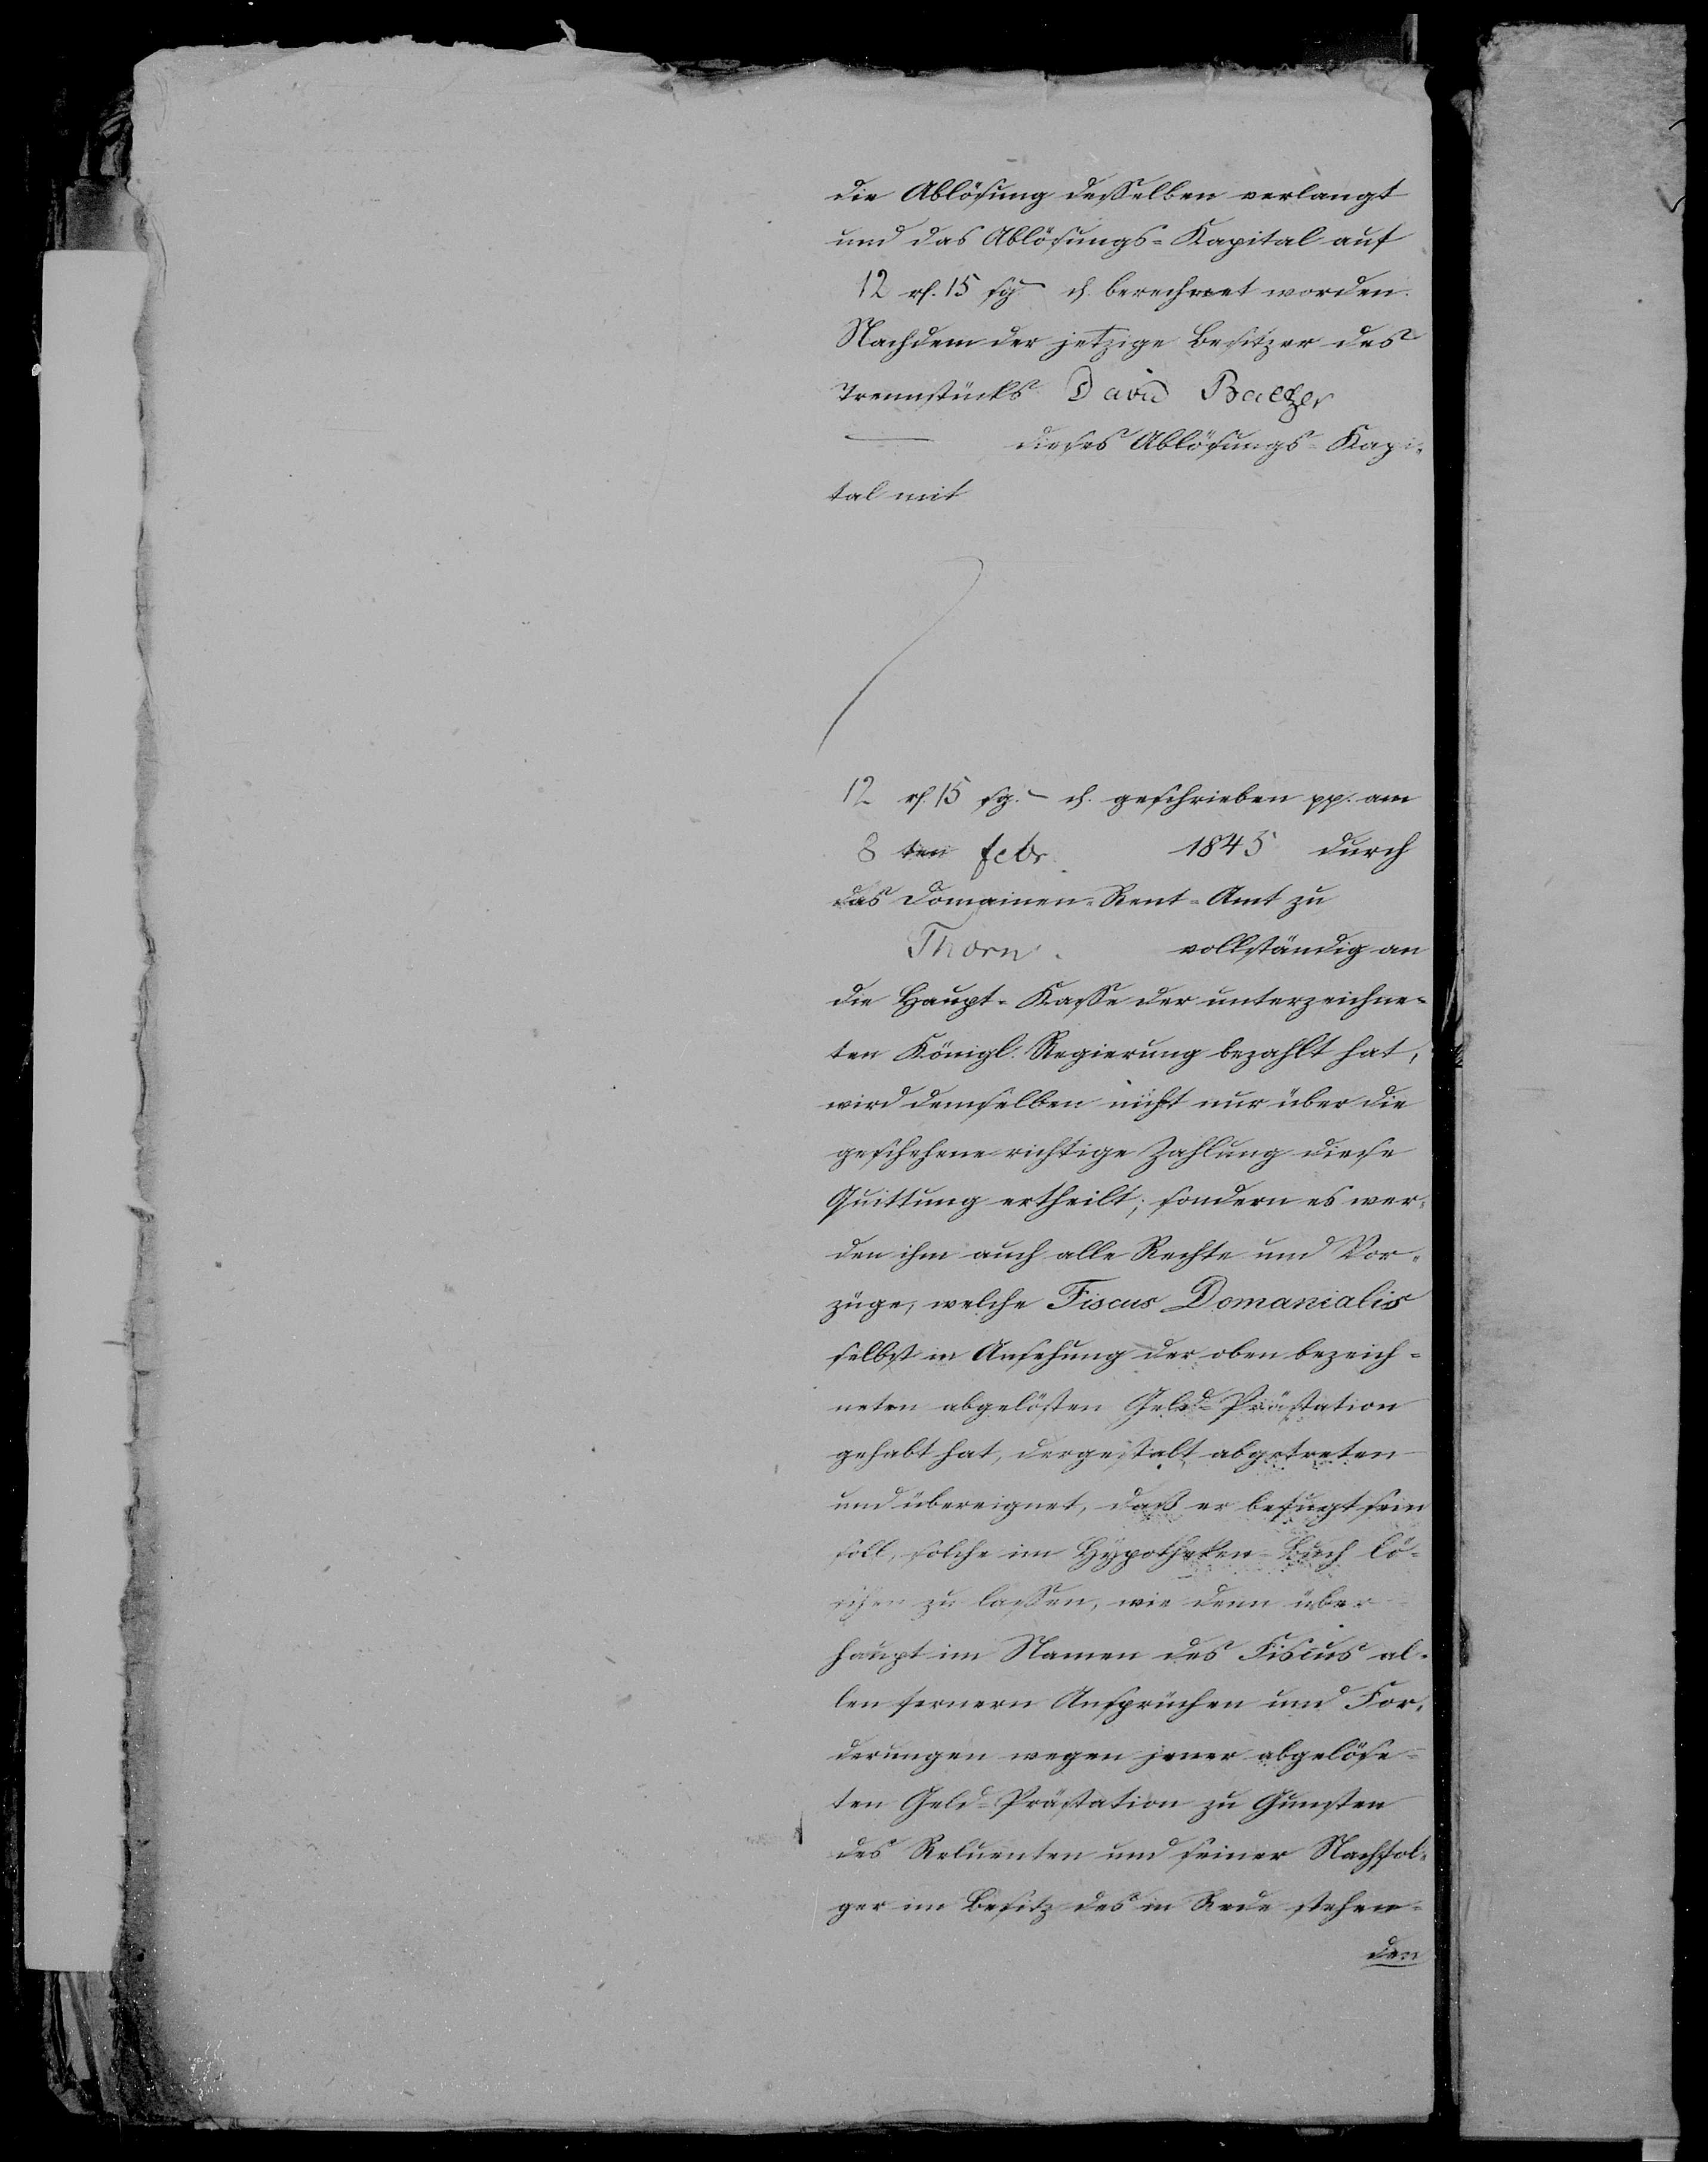 die Ablösung desselben verlangt
und das Ablösungs-Kapital auf
12 rf. 15 sg. – d. berechnet worden.
Nachdem der jetzige Besitzer des
Trennstücks David Baltzer
dieses Ablösungs-Kapi-
tal mit
12 rf. 15 sg. – d. geschrieben pp. am
8 ten Febr. 1845 durch
das Domainen-Rent-Amt zu
Thorn. vollständig an
die Haupt-Kasse der unterzeichne-
ten Königl. Regierung bezahlt hat,
wird demselben nicht nur über die
geschehene richtige Zahlung diese
Quittung ertheilt; sondern es wer-
den ihm auch alle Rechte und Vor-
züge, welche Fiscus Domanialis
selbst in Ansehung der oben bezeich-
neten abgelösten Geld-Prästation
gehabt hat, dergestalt abgetreten
und übereignet, daß er befugt sein
soll, solche im Hypotheken-Buch lö-
schen zu lassen, wie denn über-
haupt im Namen des Fiscus al-
len fernern Ansprüchen und For-
derungen wegen jener abgelöse-
ten Geld-Prästation zu Gunsten
des Reluenten und seiner Nachfol-
ger im Besitz des in Rede stehen-
den